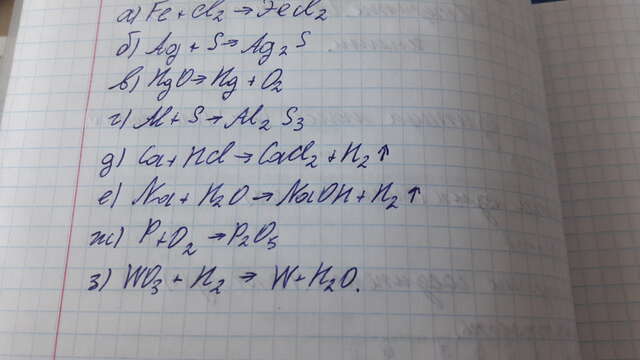 а) Fe + Cl₂ → FeCl₂
б) Ag + S → Ag₂S
в) HgO → Hg + O₂
г) Al + S → Al₂S₃
д) Ca + HCl → CaCl₂ + H₂↑
е) Na + H₂O → NaOH + H₂↑
ж) P + O₂ → P₂O₅
з) WO₃ + H₂ → W + H₂O.